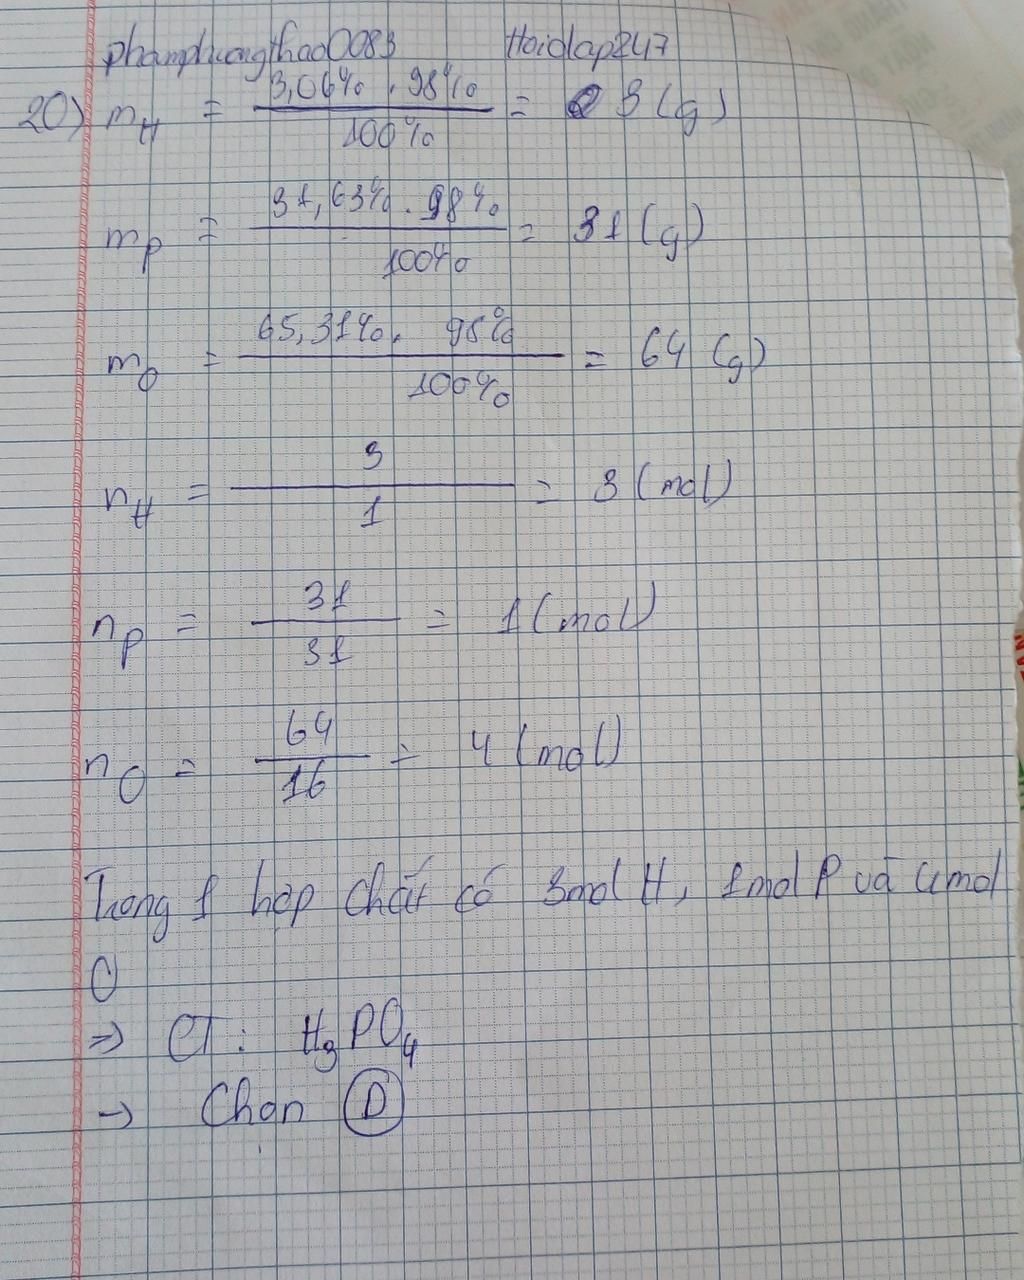 phamphuongthao0083 Hoidap247
20) m_H = \frac{3,06% . 98%}{100%} = 3 (g)
m_P = \frac{31,63% . 98%}{100%} = 31 (g)
m_O = \frac{65,31% . 98%}{100%} = 64 (g)
n_H = \frac{3}{1} = 3 (mol)
n_P = \frac{31}{31} = 1 (mol)
n_O = \frac{64}{16} = 4 (mol)
Trong 1 hợp chất có 3mol H, 1mol P và 4mol
O
=> CT: H_3PO_4
-> Chọn D